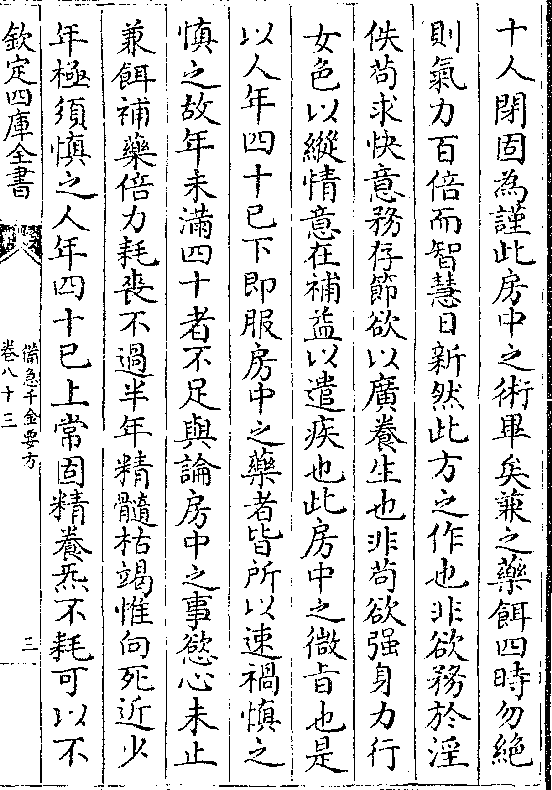 十人閉固為謹此房中之術畢矣兼之藥餌四時勿絶
則氣力百倍而智慧日新然此方之作也非欲務於淫
佚茍求快意務存節欲以廣養生也非茍欲强身力行
女色以縱情意在補益以遣疾也此房中之微旨也是
以人年四十已下即服房中之藥者皆所以速禍慎之
慎之故年未滿四十者不足與論房中之事慾心未止
兼餌補藥倍力耗喪不過半年精髓枯竭惟向死近少
年極須慎之人年四十已上常固精養炁不耗可以不
欽定四庫全書
備急千金要方
卷八十三
三